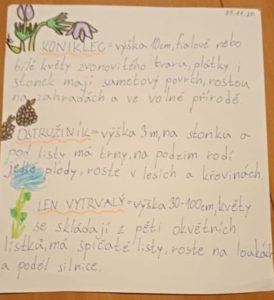 23.11.20
KONIKLEC = výška 10cm, fialové nebo
bílé květy zvonovitého tvaru, plátky i
stonek mají sametový povrch, rostou
na zahradách a ve volné přírodě.
OSTRUŽINÍK = výška 3 m, na stonku a
pod listy má trny, na podzim rodí
jedlé plody, roste v lesích a křovinách.
LEN VYTRVALÝ = výška 30-100cm, květy
se skládají z pěti okvětních
lístků, má špičaté listy, roste na loukách
a podél silnice.